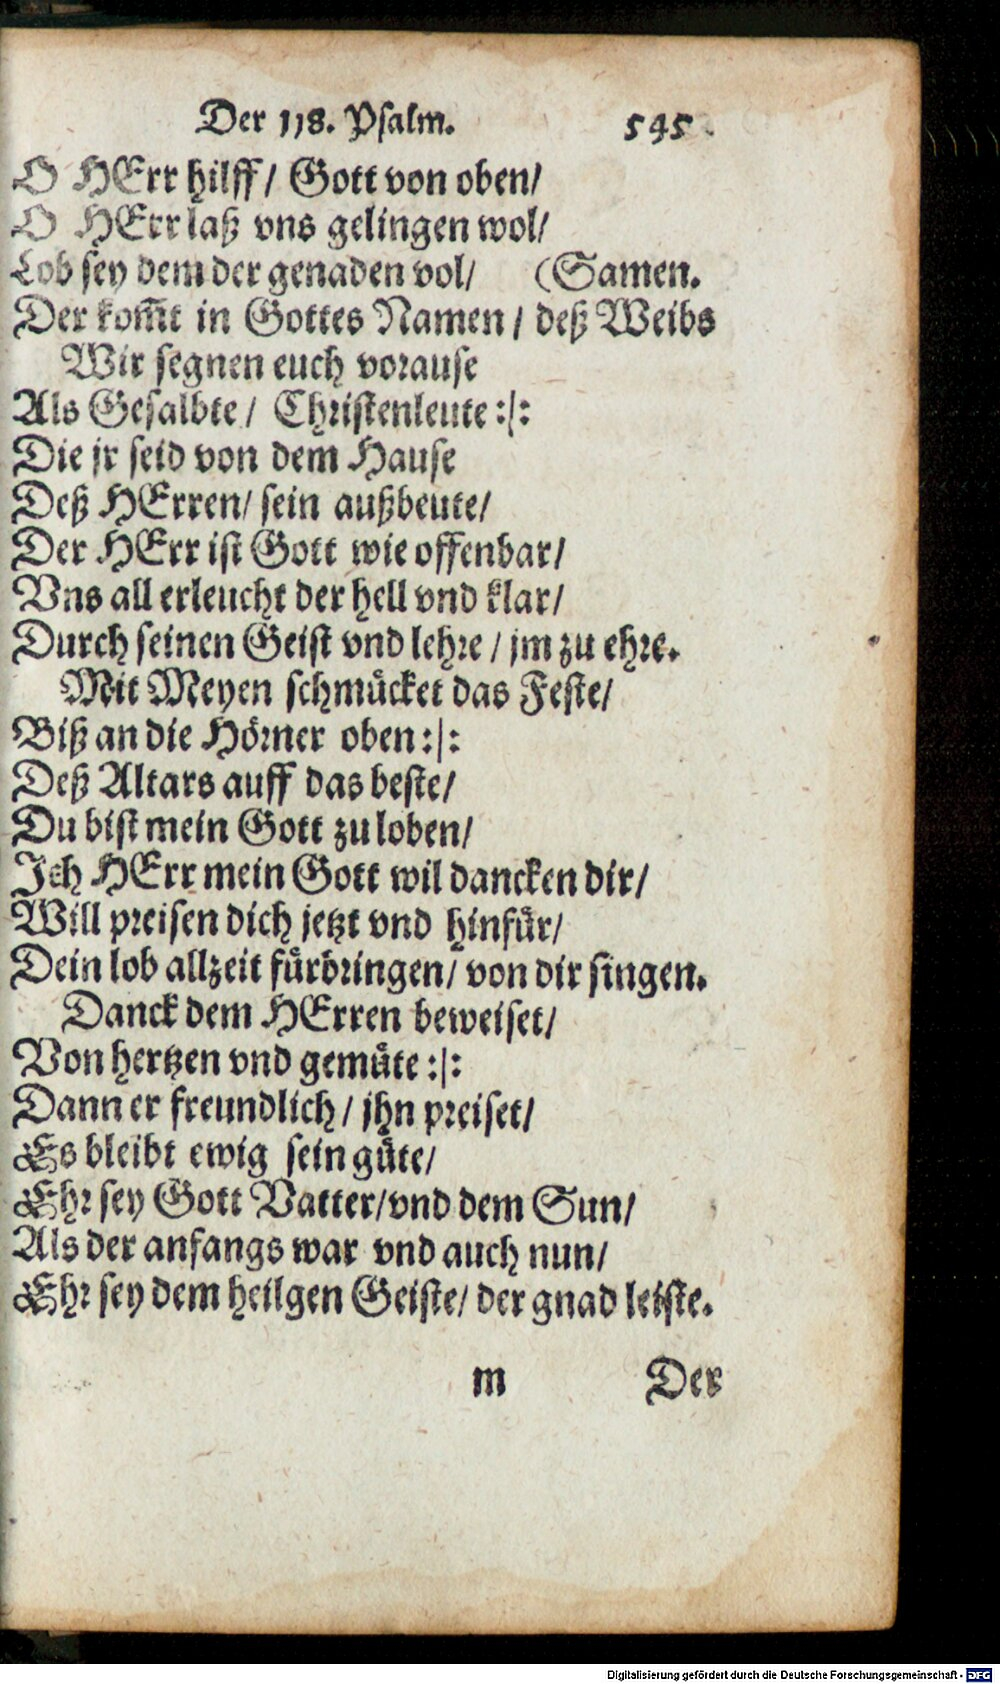 Der 118. Psalm. 545.
O HErr hilff/ Gott von oben/
O HErr laß vns gelingen wol/
Lob sey dem der genaden vol/ (Samen.
Der kom̃t in Gottes Namen/ deß Weibs
Wir segnen euch vorause
Als Gesalbte/ Christenleute :/:
Die jr seid von dem Hause
Deß HErren/ sein außbeute/
Der HErr ist Gott wie offenbar/
Vns all erleucht der hell vnd klar/
Durch seinen Geist vnd lehre/ jm zu ehre.
Mit Meyen schmücket das Feste/
Biß an die Hörner oben :/:
Deß Altars auff das beste/
Du bist mein Gott zu loben/
Ich HErr mein Gott wil dancken dir/
Will preisen dich jetzt vnd hinfür/
Dein lob allzeit fürbringen/ von dir singen.
Danck dem HErren beweiset/
Von hertzen vnd gemüte :/:
Dann er freundlich/ jhn preiset/
Es bleibt ewig sein güte/
Ehr sey Gott Vatter/ vnd dem Sun/
Als der anfangs war vnd auch nun/
Ehr sey dem heilgen Geiste/ der gnad leiste.
m Der
Digitalisierung gefördert durch die Deutsche Forschungsgemeinschaft - DFG